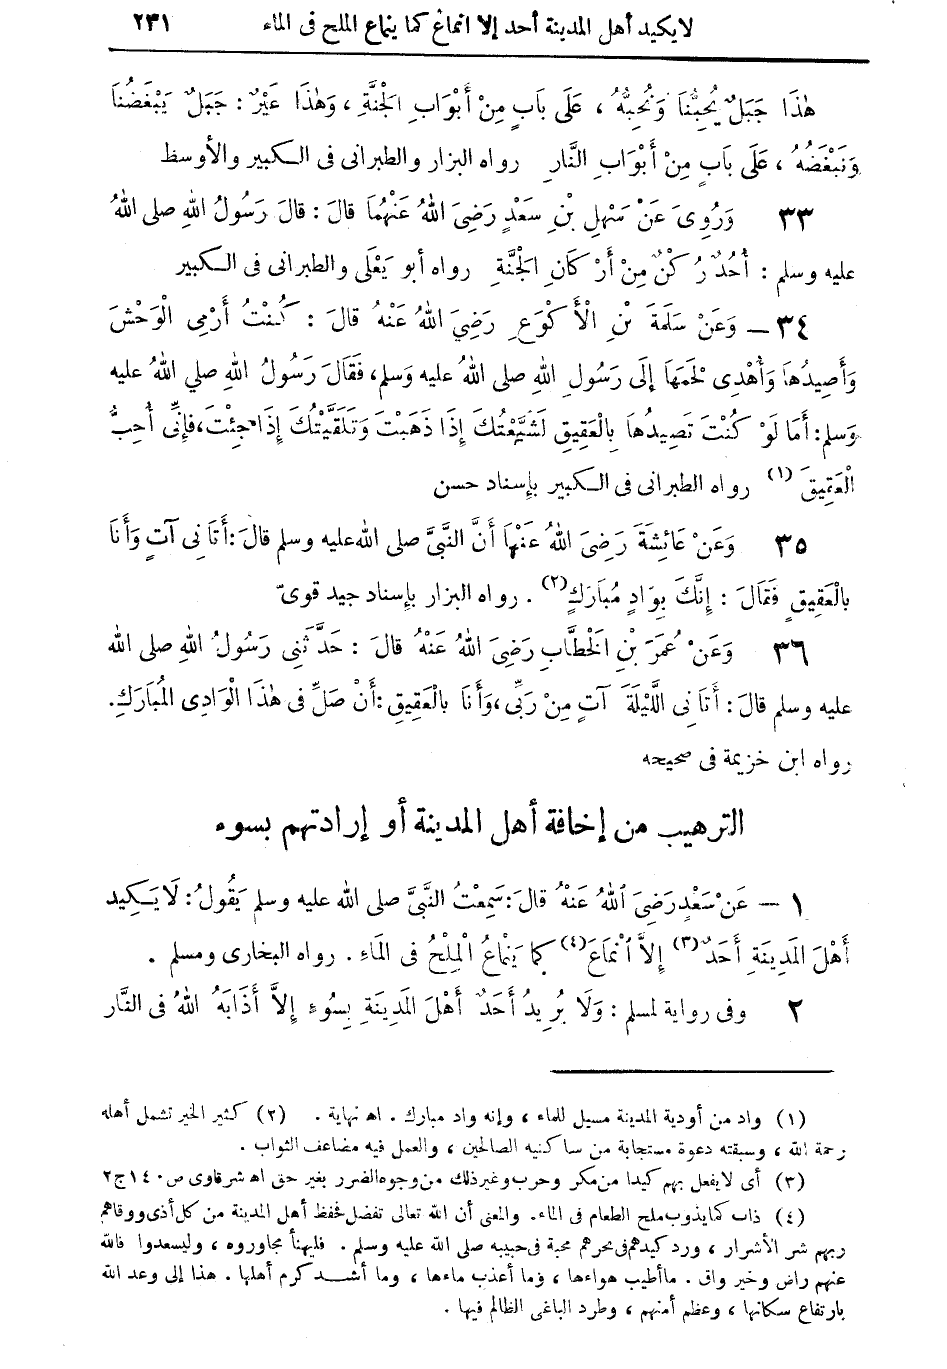 لا يكيد أهل المدينة أحد إلا انماع كما ينماع الملح فى الماء ٢٣١
هٰذَا جَبَلٌ يُحِبُّنَا وَنُحِبُّهُ ، عَلَى بَابٍ مِنْ أَبْوَابِ الْجَنَّةِ ، وَهٰذَا عَيْرٌ : جَبَلٌ يَبْغَضُنَا
وَنَبْغَضُهُ ، عَلَى بَابٍ مِنْ أَبْوَابِ النَّارِ رواه البزار والطبرانى فى الكبير والأوسط
٣٣ وَرُوِىَ عَنْ سَهْلِ بْنِ سَعْدٍ رَضِىَ اللهُ عَنْهُمَا قَالَ : قَالَ رَسُولُ اللهِ صلى اللهُ
عليه وسلم : أُحُدٌ رُكْنٌ مِنْ أَرْكَانِ الْجَنَّةِ رواه أبو يَعْلَى والطبرانى فى الكبير
٣٤ — وَعَنْ سَلَمَةَ بْنِ الْأَكْوَعِ رَضِىَ اللهُ عَنْهُ قالَ : كُنْتُ أَرْمِى الْوَحْشَ
وَأَصِيدُهَا وَأُهْدِى لَحْمَهَا إِلَى رَسُولِ اللهِ صلى اللهُ عليه وَسلم، فَقَالَ رَسُولُ اللهِ صلي اللهُ عليه
وَسلم: أَمَا لَوْ كُنْتَ تَصِيدُهَا بِالْعَقِيقِ لَشَيَّعْتُكَ إِذَا ذَهَبْتَ وَتَلَقَّيْتُكَ إِذَا جِئْتَ، فَإِنِّى أُحِبُّ
الْعَقِيقَ (١) رواه الطبرانى فى الكبير بإسناد حسن
٣٥ وَعَنْ عَائِشَةَ رَضِىَ اللهُ عَنْهَا أَنَّ النَّبِىَّ صلى الله عليه وسلم قالَ: أَتَانِى آتٍ وَأَنَا
بِالْعَقِيقِ فَقَالَ : إِنَّكَ بِوَادٍ مُبَارَكٍ (٢) . رواه البزار بإسناد جيد قوىّ
٣٦ وَعَنْ عُمَرَ بْنِ الْخَطَّابِ رَضِىَ اللهُ عَنْهُ قالَ : حَدَّثَنِى رَسُولُ اللهِ صلى الله
عليه وسلم قالَ : أَتَانِى اللَّيْلَةَ آتٍ مِنْ رَبِّى، وَأَنَا بِالْعَقِيقِ: أَنْ صَلِّ فى هٰذَا الْوَادِى المُبَارَكِ.
رواه ابن خزيمة فى صحيحه
الترهيب من إخافة أهل المدينة أو إرادتهم بسوء
١ — عَنْ سَعْدٍ رَضِىَ اللهُ عَنْهُ قالَ: سَمِعْتُ النَّبِىَّ صلى الله عليه وسلم يَقُولُ: لَا يَكِيد
أَهْلَ المَدِينَةِ أَحَدٌ (٣) إِلاَّ انْمَاعَ (٤) كَمَا يَنْمَاعُ الْمِلْحُ فى المَاءِ . رواه البخارى ومسلم .
٢ وفى رواية لمسلم : وَلَا يُرِيدُ أَحَدٌ أَهْلَ المَدِينَةِ بِسُوءٍ إِلاَّ أَذَابَهُ اللهُ فى النَّار
(١) واد من أودية المدينة مسيل للماء ، وإنه واد مبارك . اه نهاية . (٢) كثير الخير تشمل أهله
رحمة الله ، وسبقته دعوة مستجابة من ساكنيه الصالحين ، والعمل فيه مضاعف الثواب .
(٣) أى لا يفعل بهم كيدا من مكر وحرب وغير ذلك من وجوه الضرر بغير حق اه شرقاوى ص ١٤٠ ج ٢
(٤) ذاب كما يذوب ملح الطعام فى الماء. والمعنى أن الله تعالى تفضل فحفظ أهل المدينة من كل أذى ووقاهم
ربهم شر الأشرار ، ورد كيدهم فى نحرهم محبة فى حبيبه صلى الله عليه وسلم . فليهنأ مجاوروه ، وليسعدوا فالله
عنهم راض وخير واق . ما أطيب هواءها ، وما أعذب ماءها ، وما أشد كرم أهلها . هذا إلى وعد الله
بارتفاع سكانها ، وعظم أمنهم ، وطرد الباغى الظالم فيها .